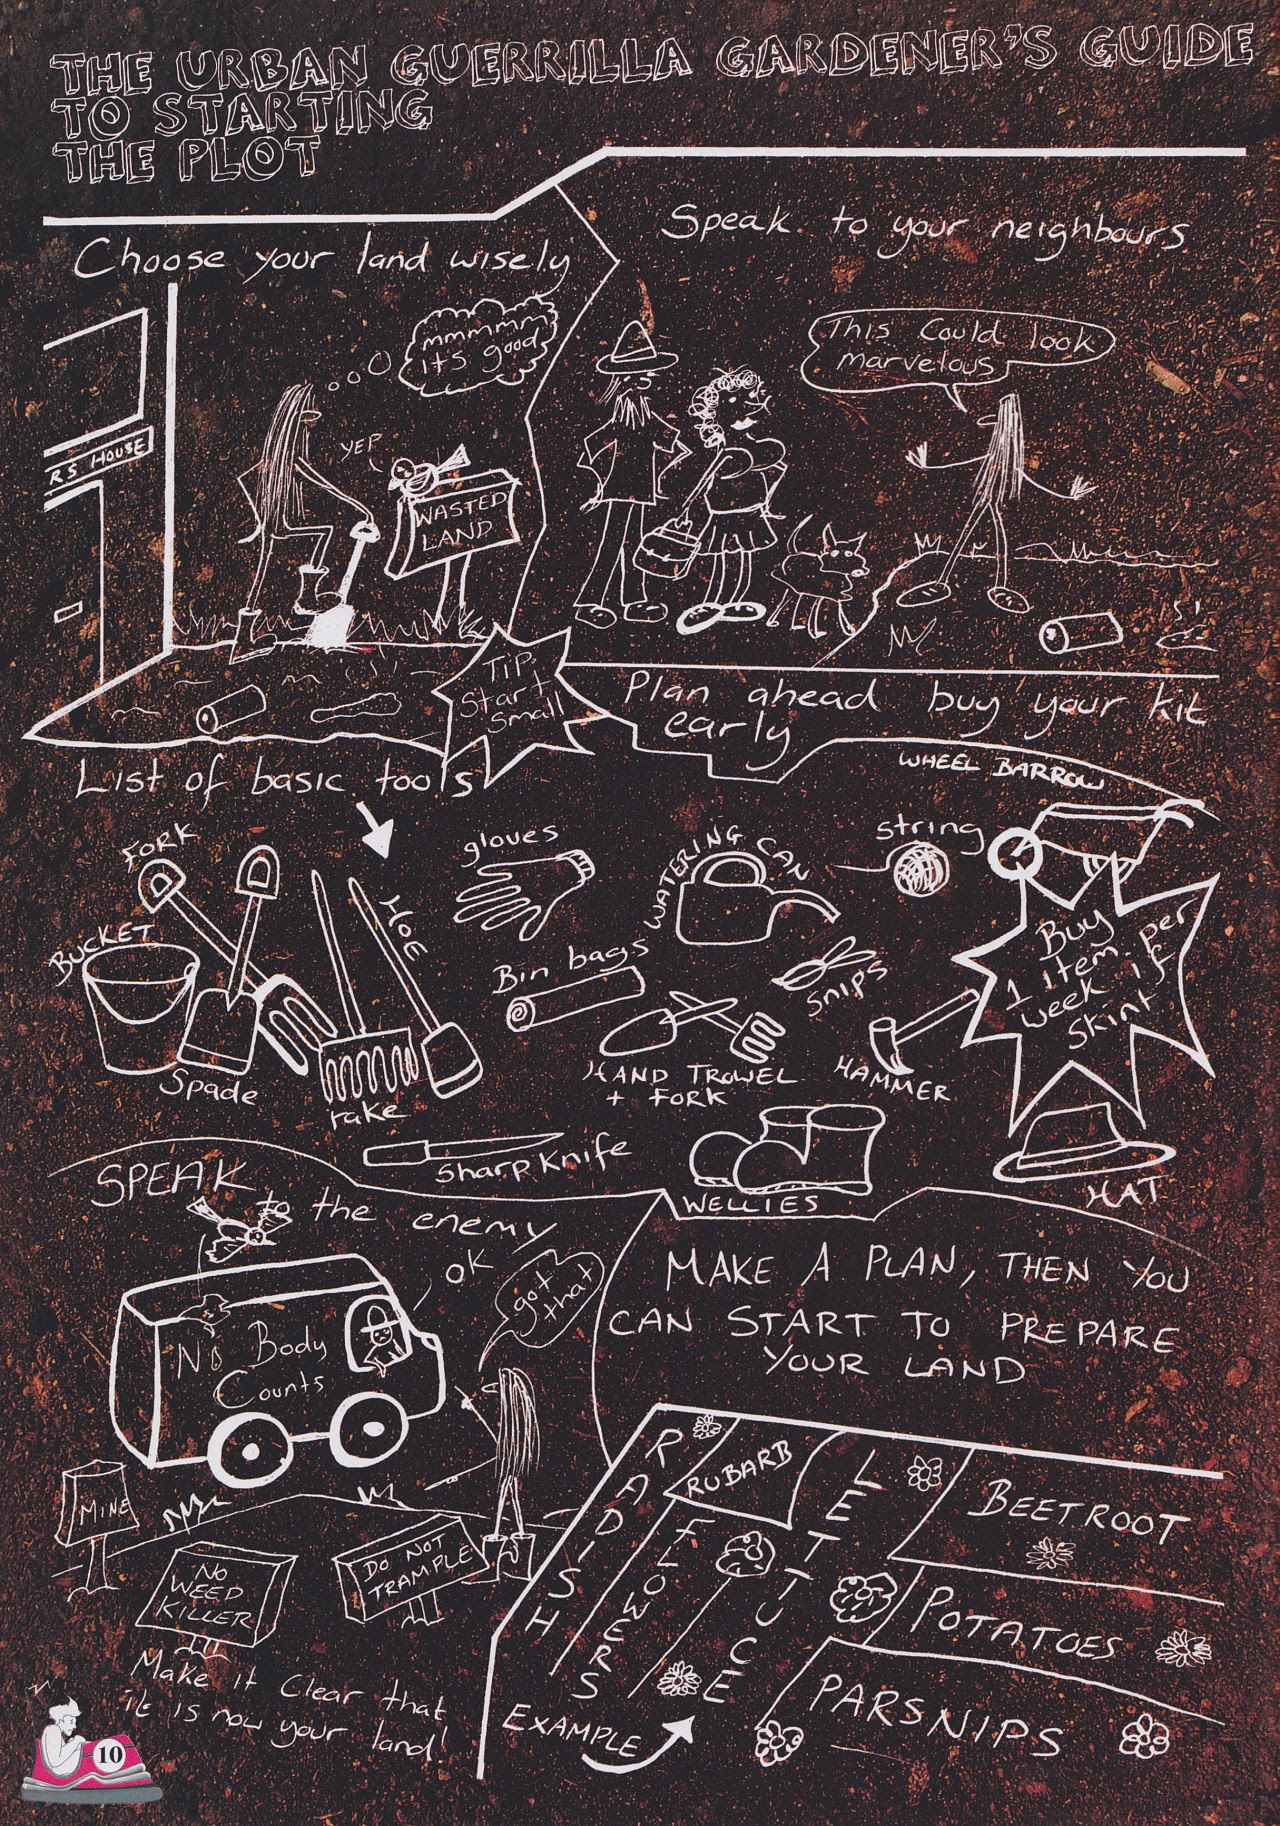 THE URBAN GUERRILLA GARDENER'S GUIDE
TO STARTING
THE PLOT
Choose your land wisely
mmmmm
it's good
YEP
RS HOUSE
WASTED
LAND
Speak to your neighbours
This Could look
marvelous
TIP
Start
Small
Plan ahead buy your kit
early
List of basic tools
FORK
BUCKET
Spade
rake
HOE
gloves
WATERING CAN
string
WHEEL BARROW
Bin bags
SNIPS
HAND TROWEL
+ FORK
HAMMER
Buy
1 item per
week if
Skint
Sharp Knife
WELLIES
HAT
SPEAK
to the enemy
OK
got
that
No Body
Counts
MINE
NO
WEED
KILLER
DO NOT
TRAMPLE
Make it Clear that
it is now your land!
MAKE A PLAN, THEN YOU
CAN START TO PREPARE
YOUR LAND
RADISH
RUBARB
FLOWERS
LETTUCE
BEETROOT
POTATOES
PARSNIPS
EXAMPLE
10